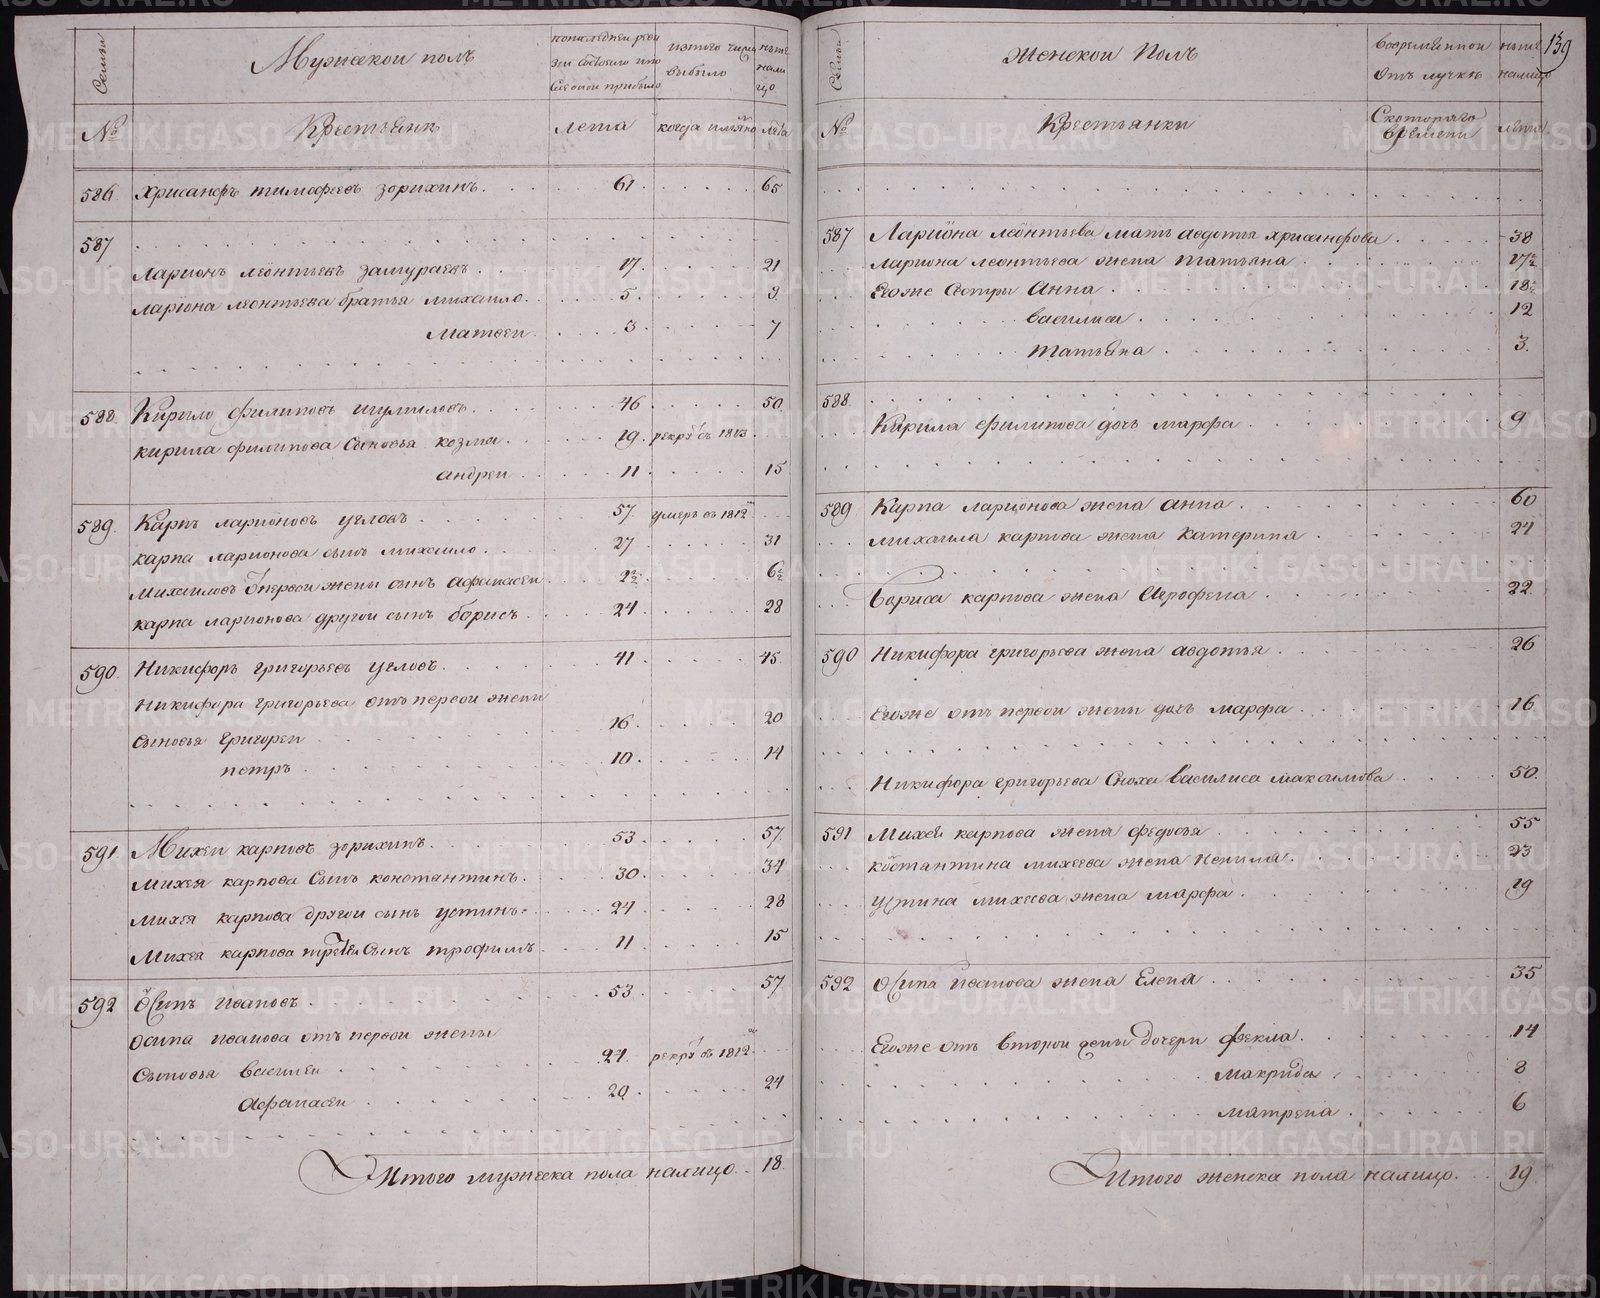 Семьи
Мужескои полъ
попоследнеи реви
зіи состояло ипо
изтого числа
выбыло
ныне
нали
цо
№
Крестьянъ
лета
когда имянно
лета
586. Хрисанфъ тимофеевъ зорихинъ. 61. 65
587
Ларионъ леонтьевъ замураевъ 17. 21
лариона леонтьева братья михаило. 5. 9
матвеи 3. 7
588. Кирило филиповъ шумиловъ 46 50
кирила филипова Сыновья козма 19. рекру въ 1813
андреи 11. 15
589. Карпъ ларионовъ угловъ 57. умеръ въ 1812
карпа ларионова сынъ михаило. 27 31
михаиловъ отпервои жены сынъ афанасеи 2½ 6½
карпа ларионова другои сынъ борисъ 24 28
590. Никифоръ григорьевъ угловъ 41 45.
Никифора григорьева отъ первои жены
сыновья григореи 16 20
петръ 10. 14
591. Михеи карповъ зорихинъ. 53. 57.
михея карпова Сынъ константинъ. 30. 34
михея карпова другои сынъ устинъ. 24 28
Михея карпова третеи Сынъ трофимъ 11 15
592 Осипъ ивановъ 53. 57
Осипа иванова отъ первои жены
Сыновья василеи 24. рекру въ 1812
Афанасеи 20. 24
Итого мужеска пола налицо 18.
Семьи
Женскои Полъ
вовременнои
отъ лучке
ныне
налицо
139
№
Крестьянки
Скотораго
времени
лета
587 Лариона леонтьева мать авдотья хрисанфова 38
лариона леонтьева жена татьяна 17½
Егоже Сестры Анна 18½
василиса 12
татьяна 3.
588
Кирила филипова дочь марфа 9
589 Карпа ларионова жена анна 60
михаила карпова жена катерина 24
бориса карпова жена Аерофена 22
590 Никифора григорьева жена авдотья 26
Егоже отъ первои жены дочь марфа 16
Никифора григорьева Сноха василиса максимова 50.
591 Михея карпова жена федосья 55
костантина михеева жена ненила 23
устина михеева жена марфа 19
592 Осипа иванова жена Елена 35
Егоже отъ второи жены дочери фекла 14
макрида 8
матрена 6
Итого женска пола налицо. 19
METRIKI.GASO-URAL.RU